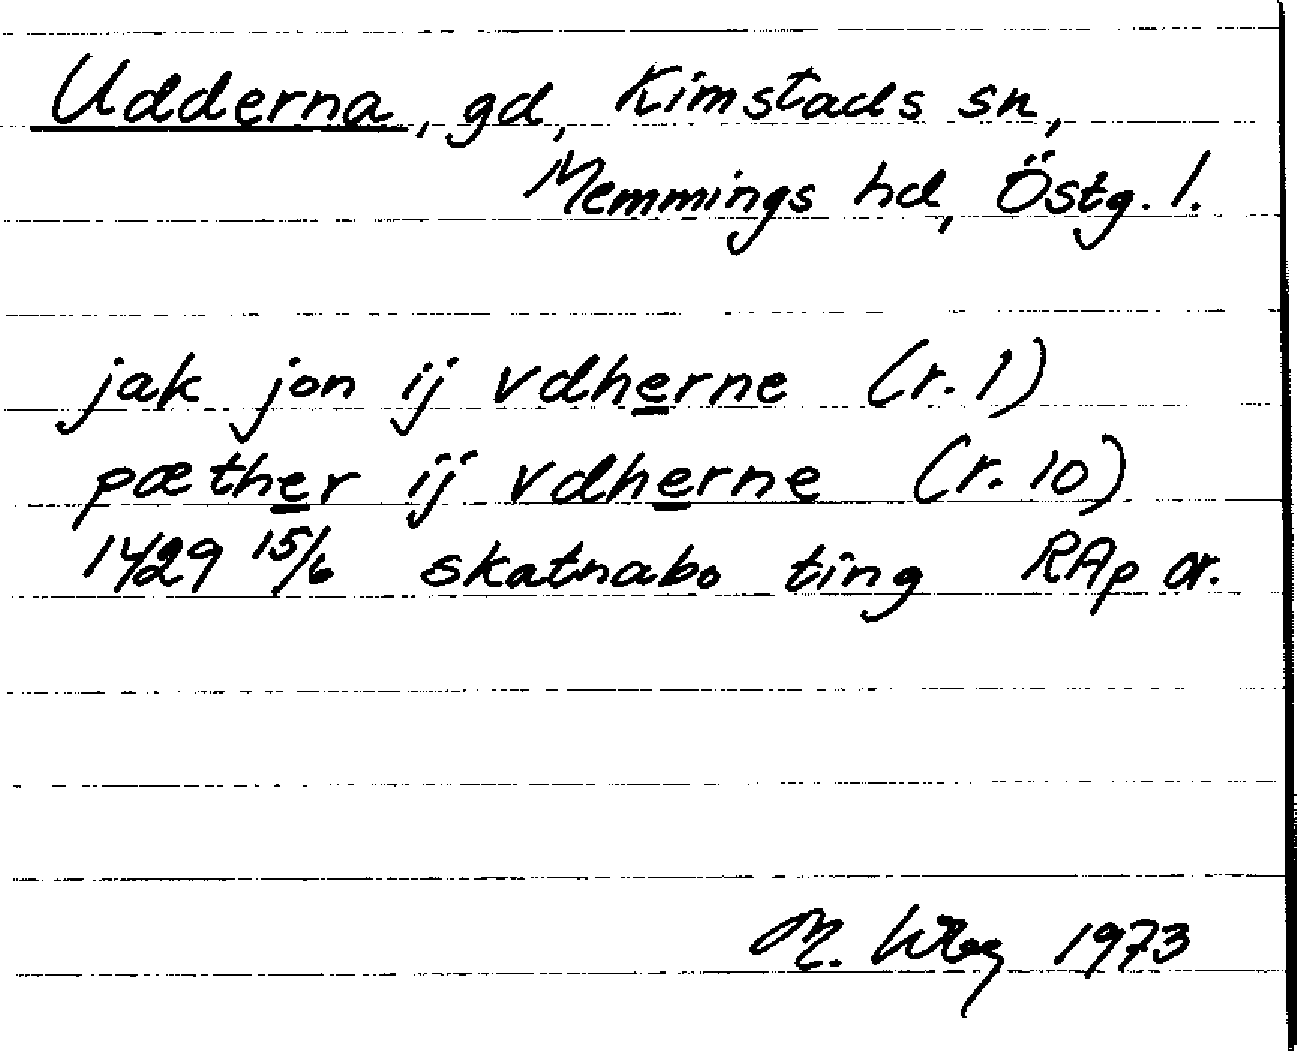 Udderna, gd, Kimstads sn,
Memmings hd, Östg. l.
jak jon ij vdherne (r. 1)
pæther ij vdherne (r. 10)
1429 15/6 skatnabo ting RAp or.
M. 1973